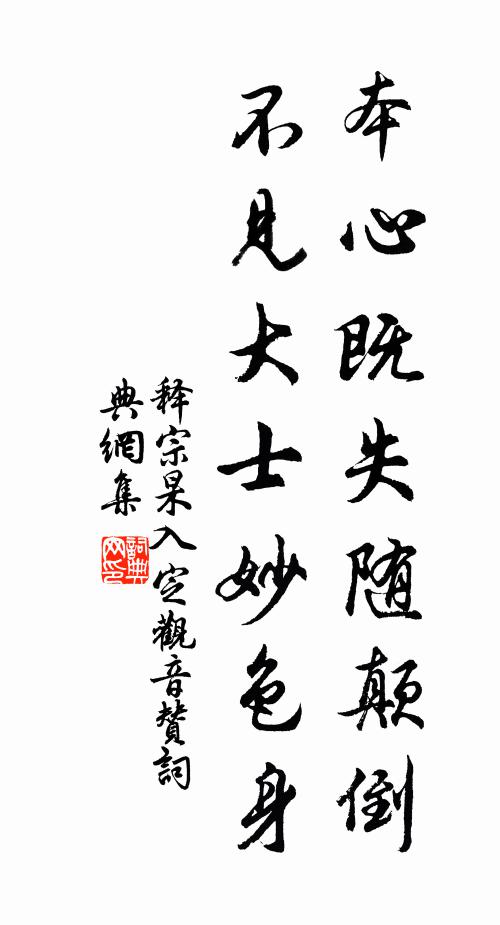 本心既失随颠倒
不見大士妙色身
释宗杲入定觀音贊詞
典網集
詞典網印